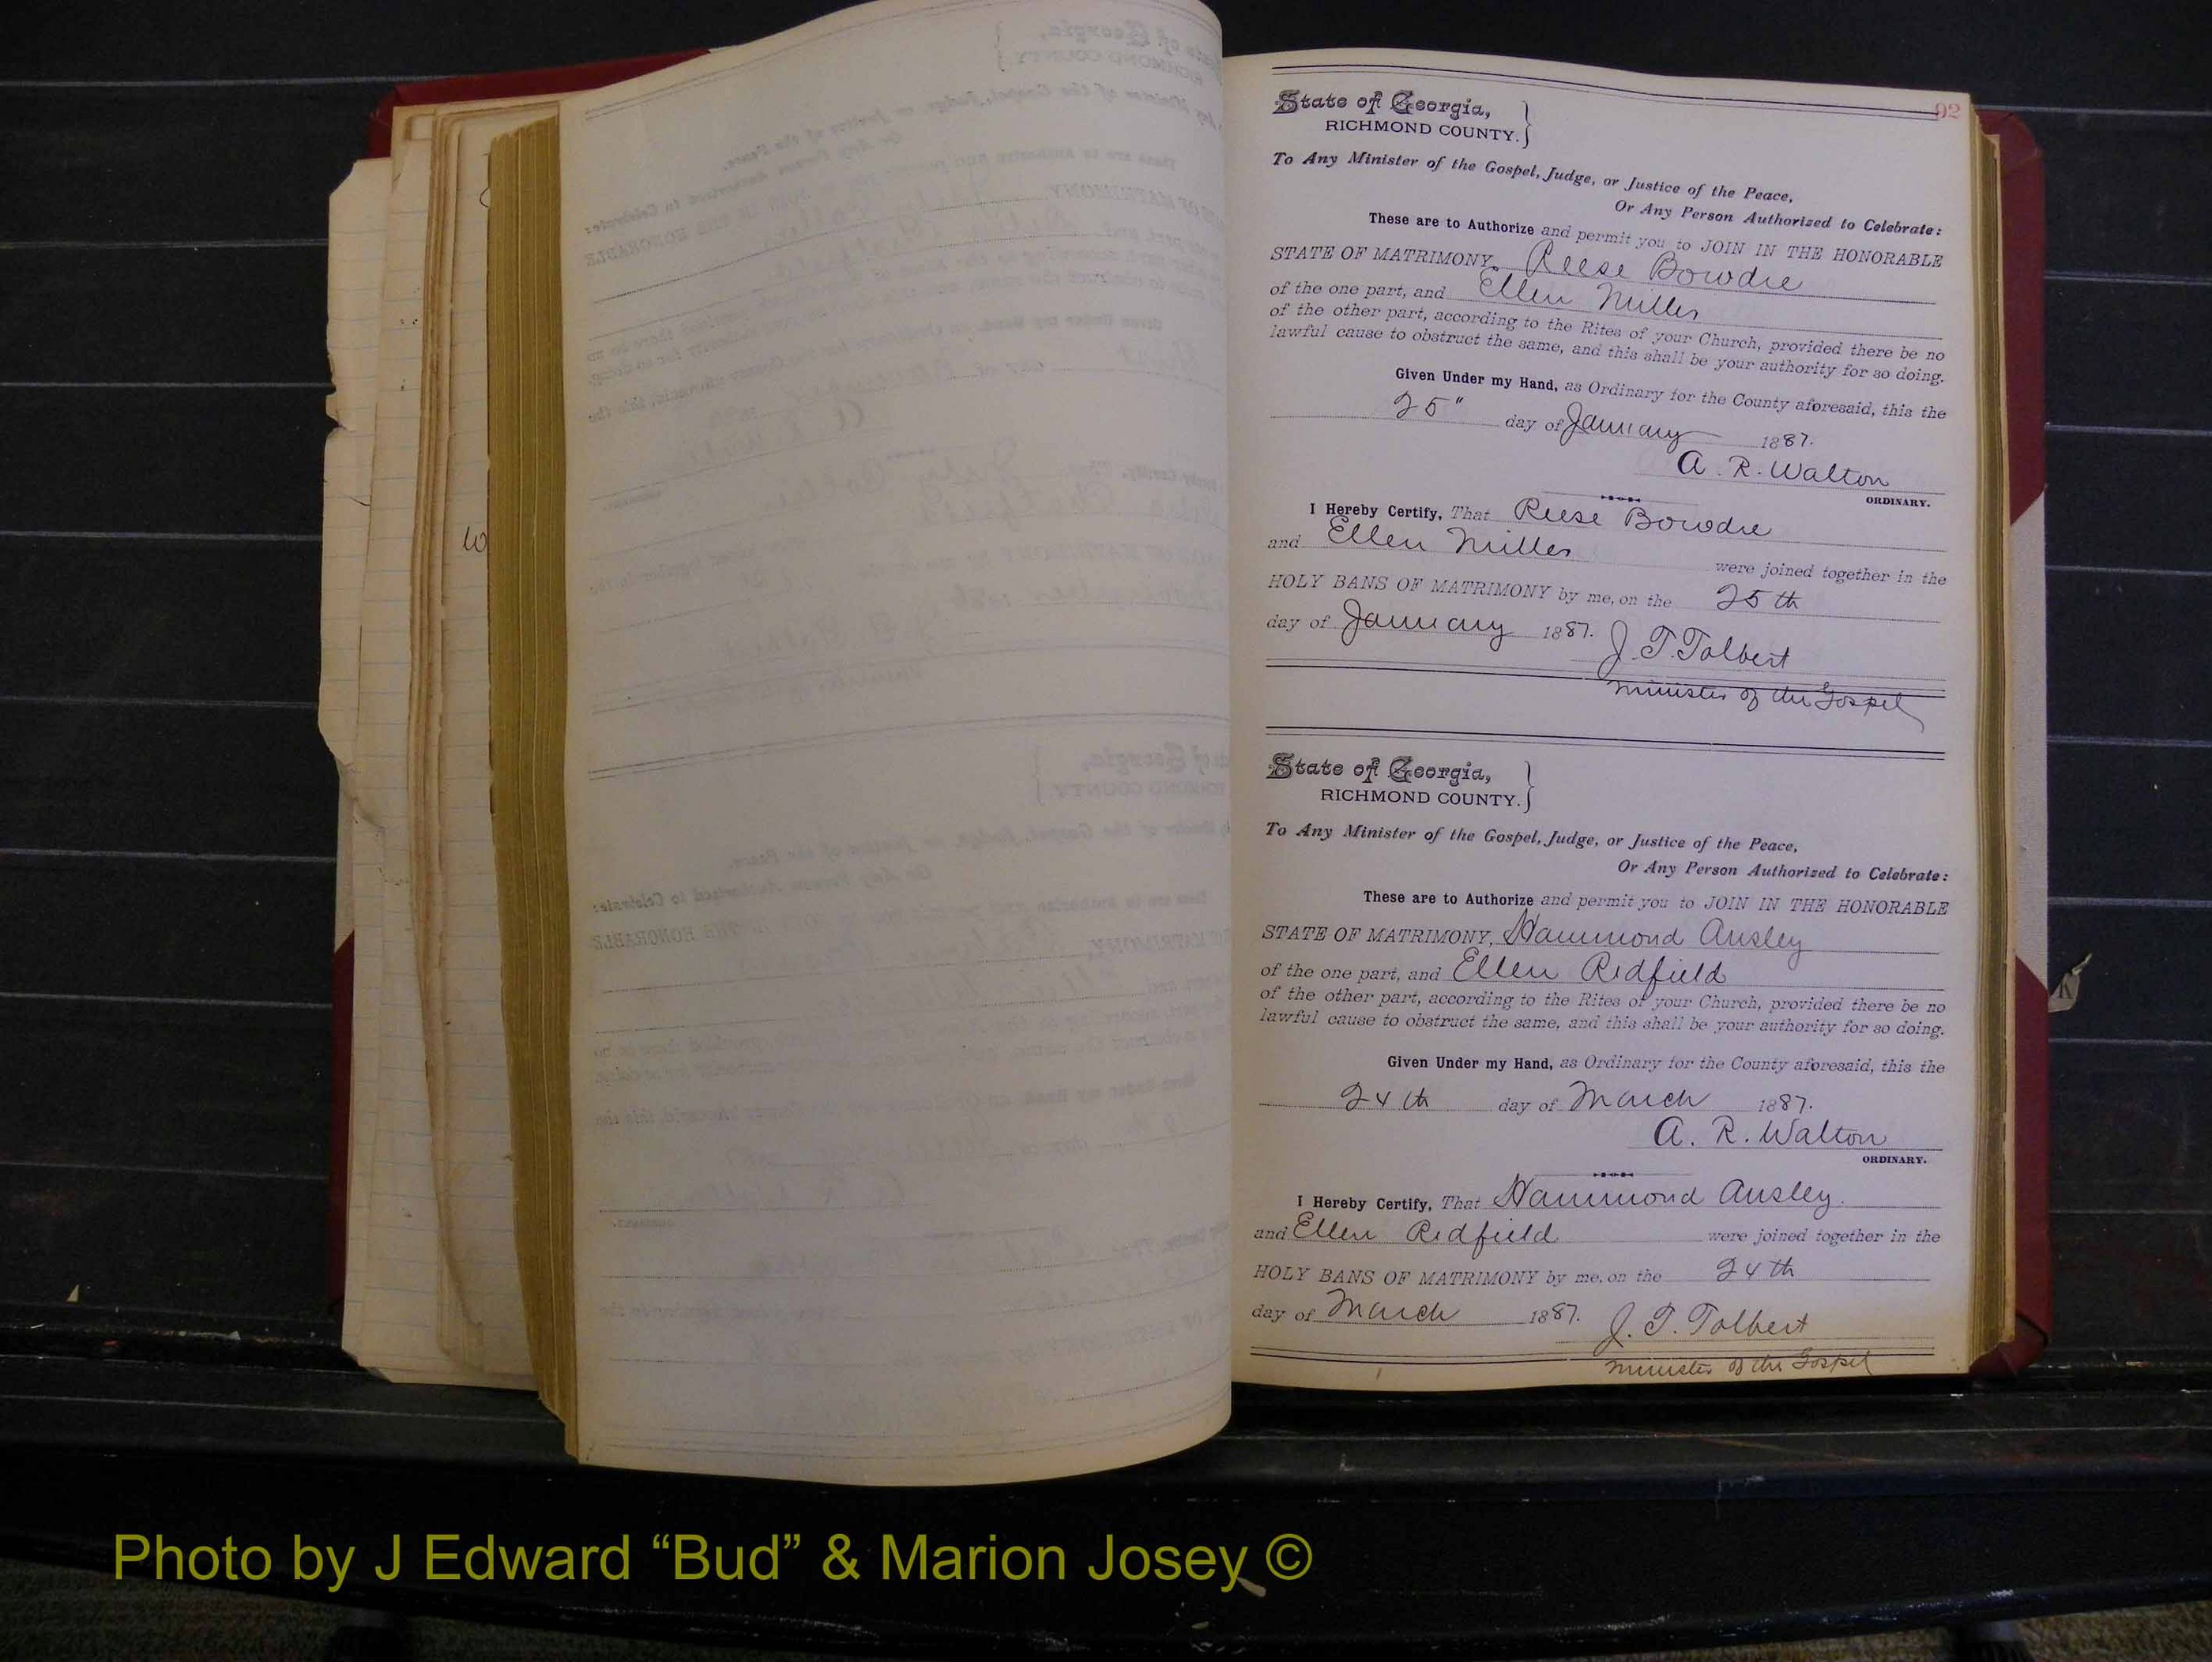 92
State of Georgia,
RICHMOND COUNTY.
To Any Minister of the Gospel, Judge, or Justice of the Peace,
Or Any Person Authorized to Celebrate:
These are to Authorize and permit you to JOIN IN THE HONORABLE
STATE OF MATRIMONY, Reese Bowdre
of the one part, and Ellen Miller
of the other part, according to the Rites of your Church, provided there be no
lawful cause to obstruct the same, and this shall be your authority for so doing.
Given Under my Hand, as Ordinary for the County aforesaid, this the
25" day of January 1887.
A. R. Walton
ORDINARY.
I Hereby Certify, That Reese Bowdre
and Ellen Miller were joined together in the
HOLY BANS OF MATRIMONY by me, on the 25th
day of January 1887. J. T. Tolbert
Minister of the Gospel
State of Georgia,
RICHMOND COUNTY.
To Any Minister of the Gospel, Judge, or Justice of the Peace,
Or Any Person Authorized to Celebrate:
These are to Authorize and permit you to JOIN IN THE HONORABLE
STATE OF MATRIMONY, Hammond Ansley
of the one part, and Ellen Redfield
of the other part, according to the Rites of your Church, provided there be no
lawful cause to obstruct the same, and this shall be your authority for so doing.
Given Under my Hand, as Ordinary for the County aforesaid, this the
24th day of March 1887.
A. R. Walton
ORDINARY.
I Hereby Certify, That Hammond Ansley.
and Ellen Redfield were joined together in the
HOLY BANS OF MATRIMONY by me, on the 24th
day of March 1887. J. T. Tolbert
Minister of the Gospel
K
Photo by J Edward “Bud” & Marion Josey ©